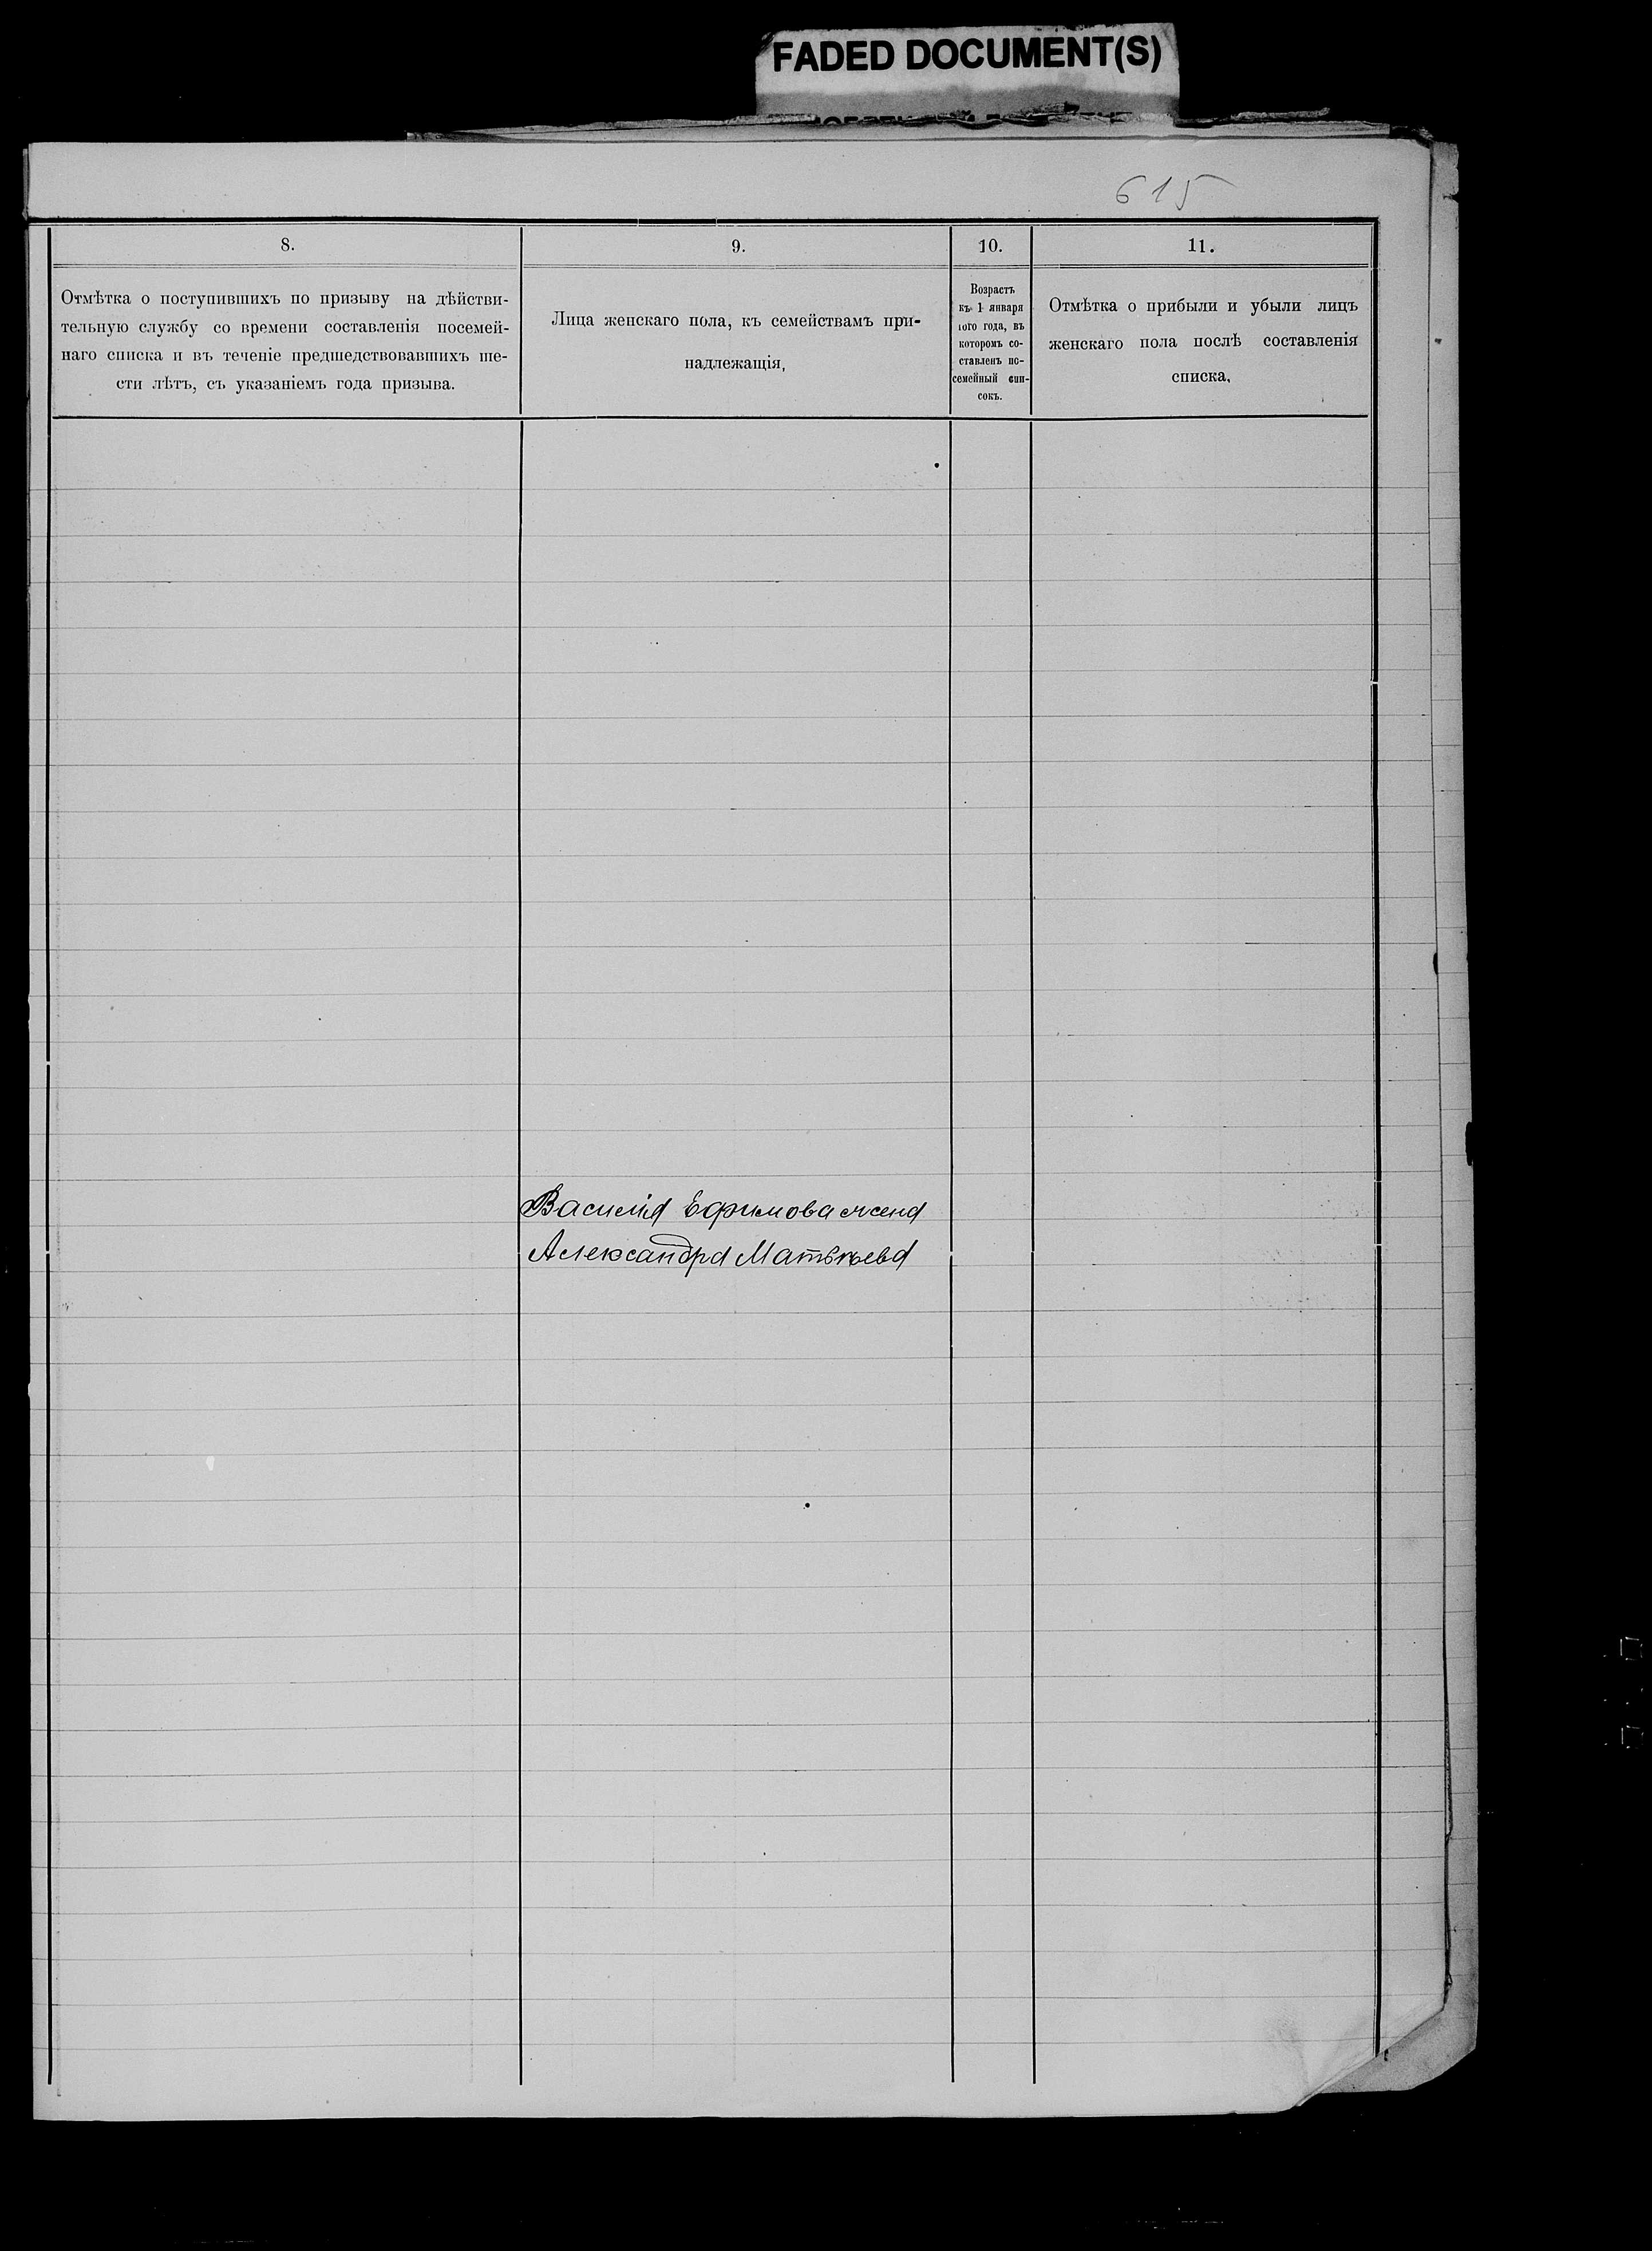 FADED DOCUMENT(S)
615
8.
9.
10.
11.
Отмѣтка о поступившихъ по призыву на дѣйстви-
тельную службу со времени составленія посемей-
наго списка и въ теченіе предшедствовавшихъ ше-
сти лѣтъ, съ указаніемъ года призыва.
Лица женскаго пола, къ семействамъ при-
надлежащія,
Возрастъ
къ 1 января
того года, въ
которомъ со-
ставленъ по-
семейный спи-
сокъ.
Отмѣтка о прибыли и убыли лицъ
женскаго пола послѣ составленія
списка,
Василія Ефимова жена
Александра Матвѣева